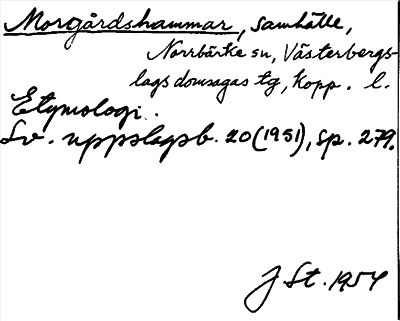 Morgårdshammar, samhälle,
Norrbärke sn, Västerbergs-
lags domsagas tg, Kopp. l.
Etymologi.
Sv. uppslagsb. 20 (1951), sp. 279.
J. St. 1954